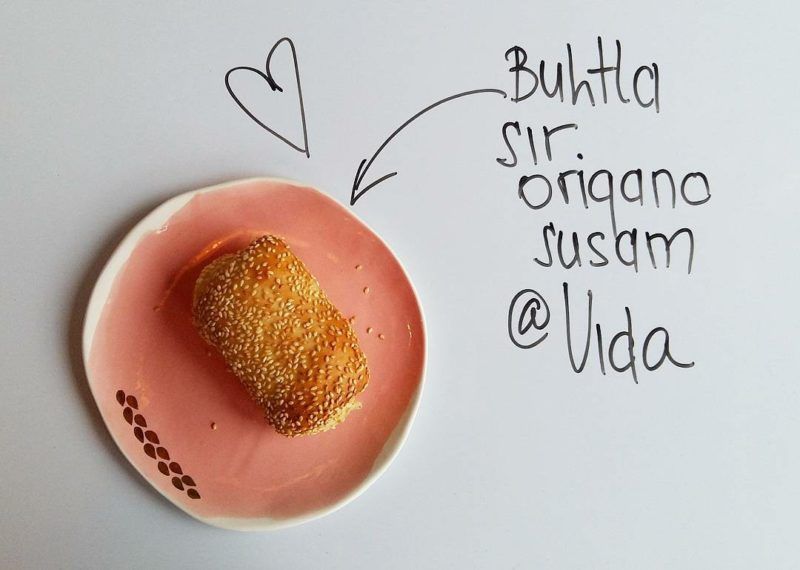 Buhtla
sir.
origano
susam
@Vida